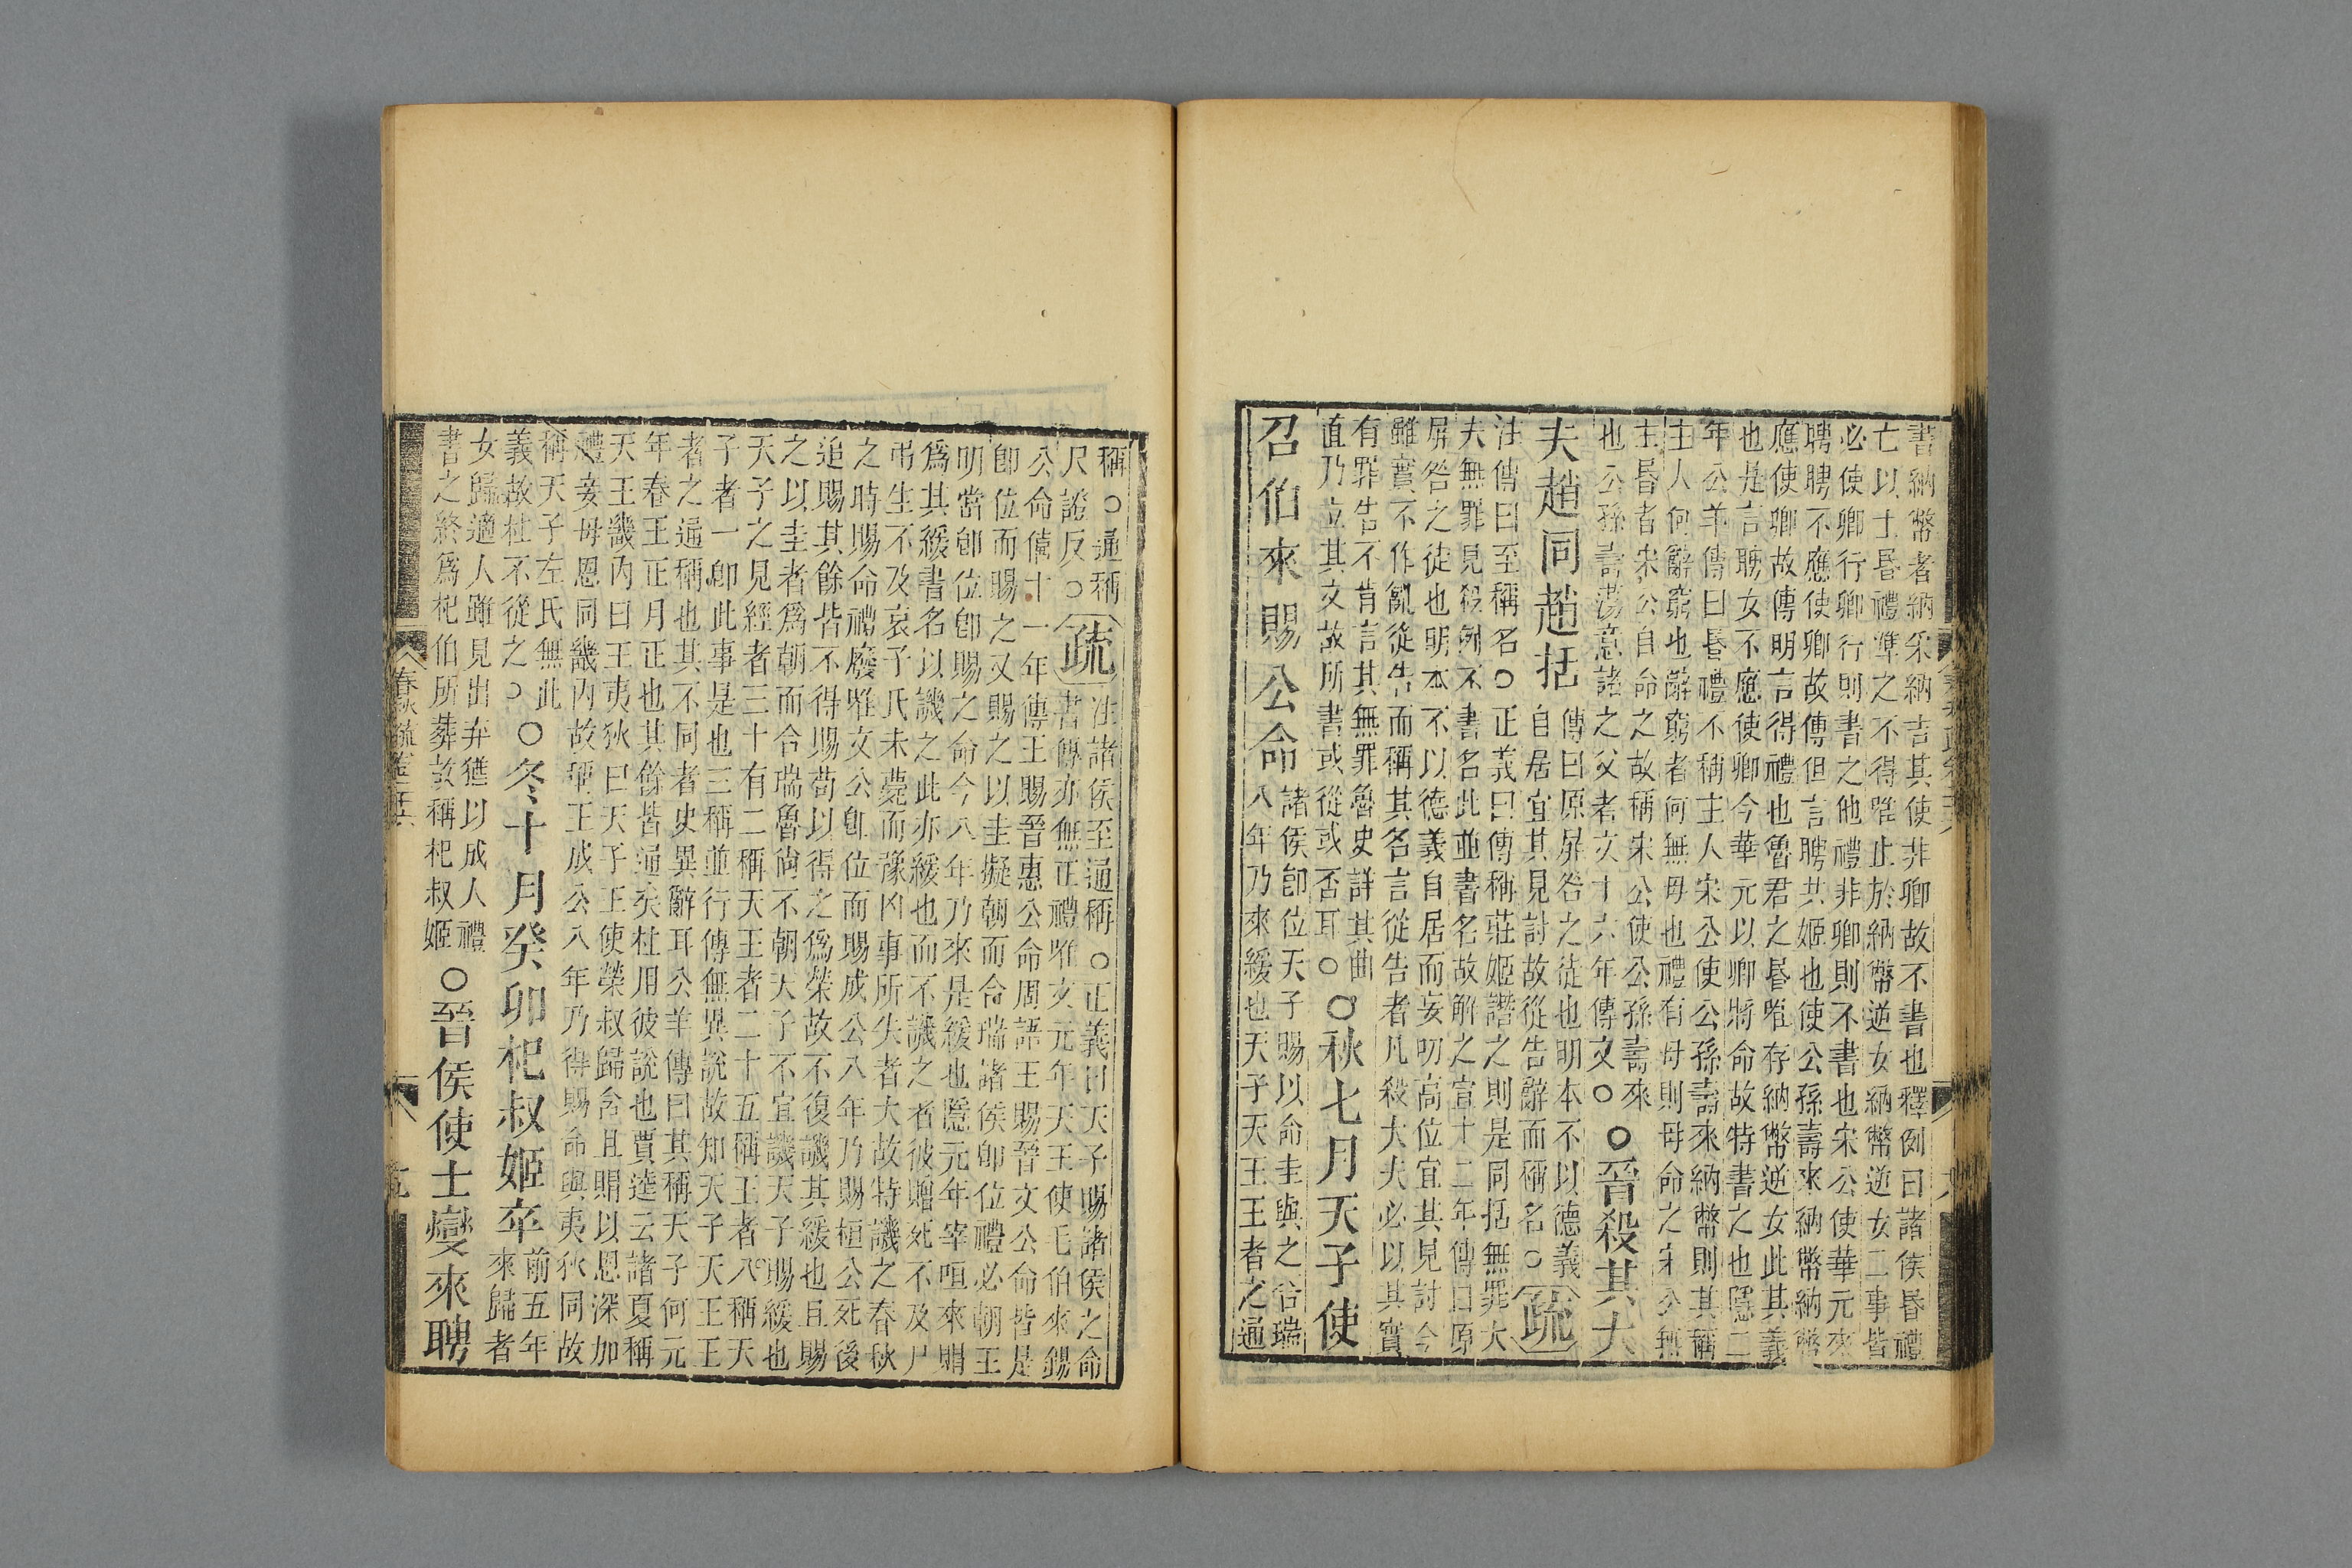 書納幣者納采納吉其使非卿故不書也釋例曰諸侯昏禮
亡以士昏禮準之不得唯止於納幣逆女納幣逆女二事皆
必使卿行卿行則書之他禮非卿則不書也宋公使華元來
聘聘不應使卿故傳但言聘共姬也使公孫壽來納幣納幣
應使卿故傳明言得禮也魯君之昏唯存納幣逆女此其義
也是言聘女不應使卿今華元以卿將命故特書之也隱二
年公羊傳曰昏禮不稱主人宋公使公孫壽來納幣則其稱
主人何辭窮也辭窮者何無母也禮有母則母命之宋公無
主昏者宋公自命之故稱宋公使公孫壽來
也公孫壽蕩意諸之父者文十六年傳文○
○晉殺其大
夫趙同趙括
傳曰原屏咎之徒也明本不以德義
自居宜其見討故從告辭而稱名○
疏
注傳曰至稱名○正義曰傳稱莊姬譖之則是同括無罪大
夫無罪見殺例不書名此並書名故解之宣十二年傳曰原
屏咎之徒也明本不以德義自居而妄叨高位宜其見討今
雖實不作亂從告而稱其名言從告者凡殺大夫必以其實
有罪告不肯言其無罪魯史詳其曲
直乃立其文故所書或從或否耳○
○秋七月天子使
召伯來賜公命
諸侯卽位天子賜以命圭與之合瑞
八年乃來緩也天子天王王者之通
稱○通稱
尺證反○
疏
注諸侯至通稱○正義曰天子賜諸侯之命
書傳亦無正禮唯文元年天王使毛伯來錫
公命僖十一年傳王賜晉惠公命周語王賜晉文公命皆是
卽位而賜之又賜之以圭擬朝而合瑞諸侯卽位禮必朝王
明當卽位卽賜之命今八年乃來是緩也隱元年宰咺來賵
爲其緩書名以譏之此亦緩也而不譏之者彼贈死不及尸
弔生不及哀子氏未薨而豫凶事所失者大故特譏之春秋
之時賜命禮廢唯文公卽位而賜成公八年乃賜桓公死後
追賜其餘皆不得賜苟以得之爲榮故不復譏其緩也且賜
之以圭者爲朝而合瑞魯尚不朝天子不宜譏天子賜緩也
天子之見經者三十有二稱天王者二十五稱王者六稱天
子者一卽此事是也三稱並行傳無異說故知天子天王王
者之通稱也其不同者史異辭耳公羊傳曰其稱天子何元
年春王正月正也其餘皆通矣杜用彼說也賈逵云諸夏稱
天王畿內曰王夷狄曰天子王使榮叔歸含且賵以恩深加
禮妾母恩同畿內故稱王成公八年乃得賜命與夷狄同故
稱天子左氏無此
義故杜不從之○
○冬十月癸卯杞叔姬卒
前五年
來歸者
女歸適人雖見出弃猶以成人禮
書之終爲杞伯所葬故稱杞叔姬
○晉侯使士燮來聘
春秋疏卷二十六